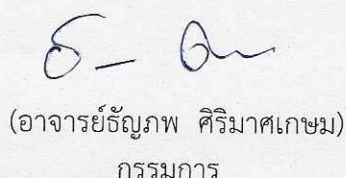 (อาจารย์ธัญภพ ศิริมาศเกษม)
กรรมการ